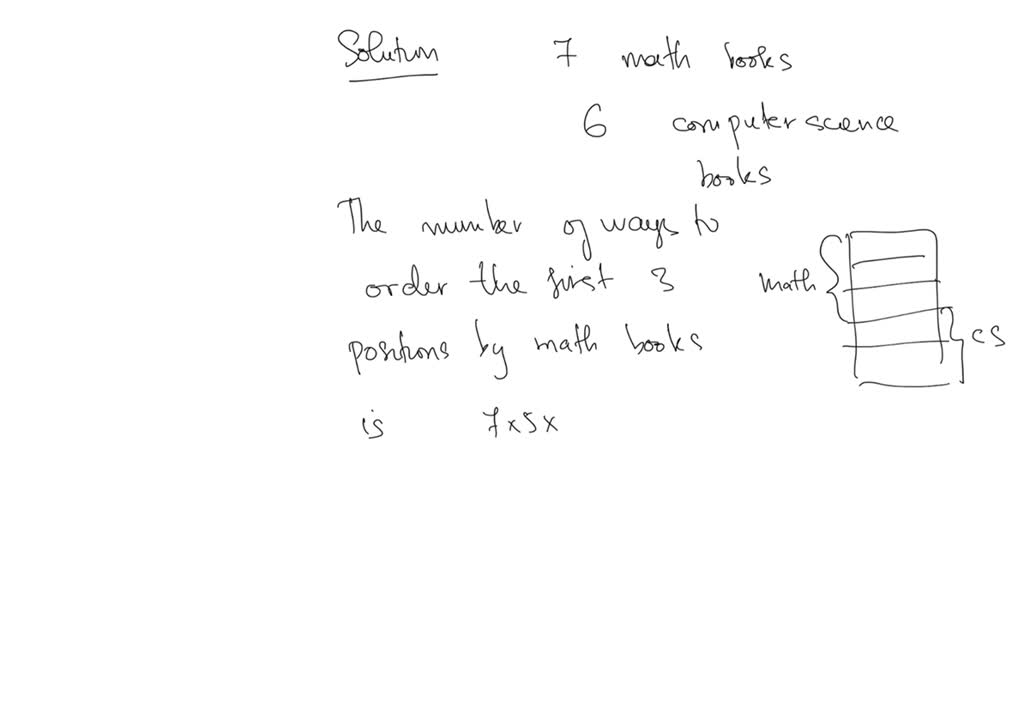 Solution 7 math books
6 computer science
books
The number of ways to
order the first 3
positions by math books
is 7x5x
math
cs